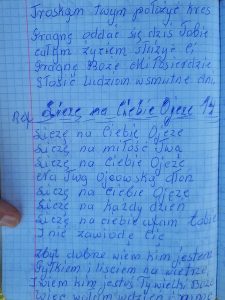 Troskom Twym położyć kres
Pragnę oddać się dziś Tobie
całym życiem służyć Ci
Pragnę Boże Miłosierdzie
Głosić Ludziom w smutne dni.
Ref Liczę na Ciebie Ojcze
Liczę na Ciebie Ojcze
Liczę na miłość Twą
Liczę na Ciebie Ojcze
na Twą Ojcowską dłoń
Liczę na Ciebie Ojcze
Liczę na każdy dzień
Liczę na Ciebie ufam Tobie
I nie zawiodę się
Zbyt dobrze wiem kim jestem
Pyłkiem i liściem na wietrze
I wiem kim jesteś Ty wielki Boże
Więc wołam